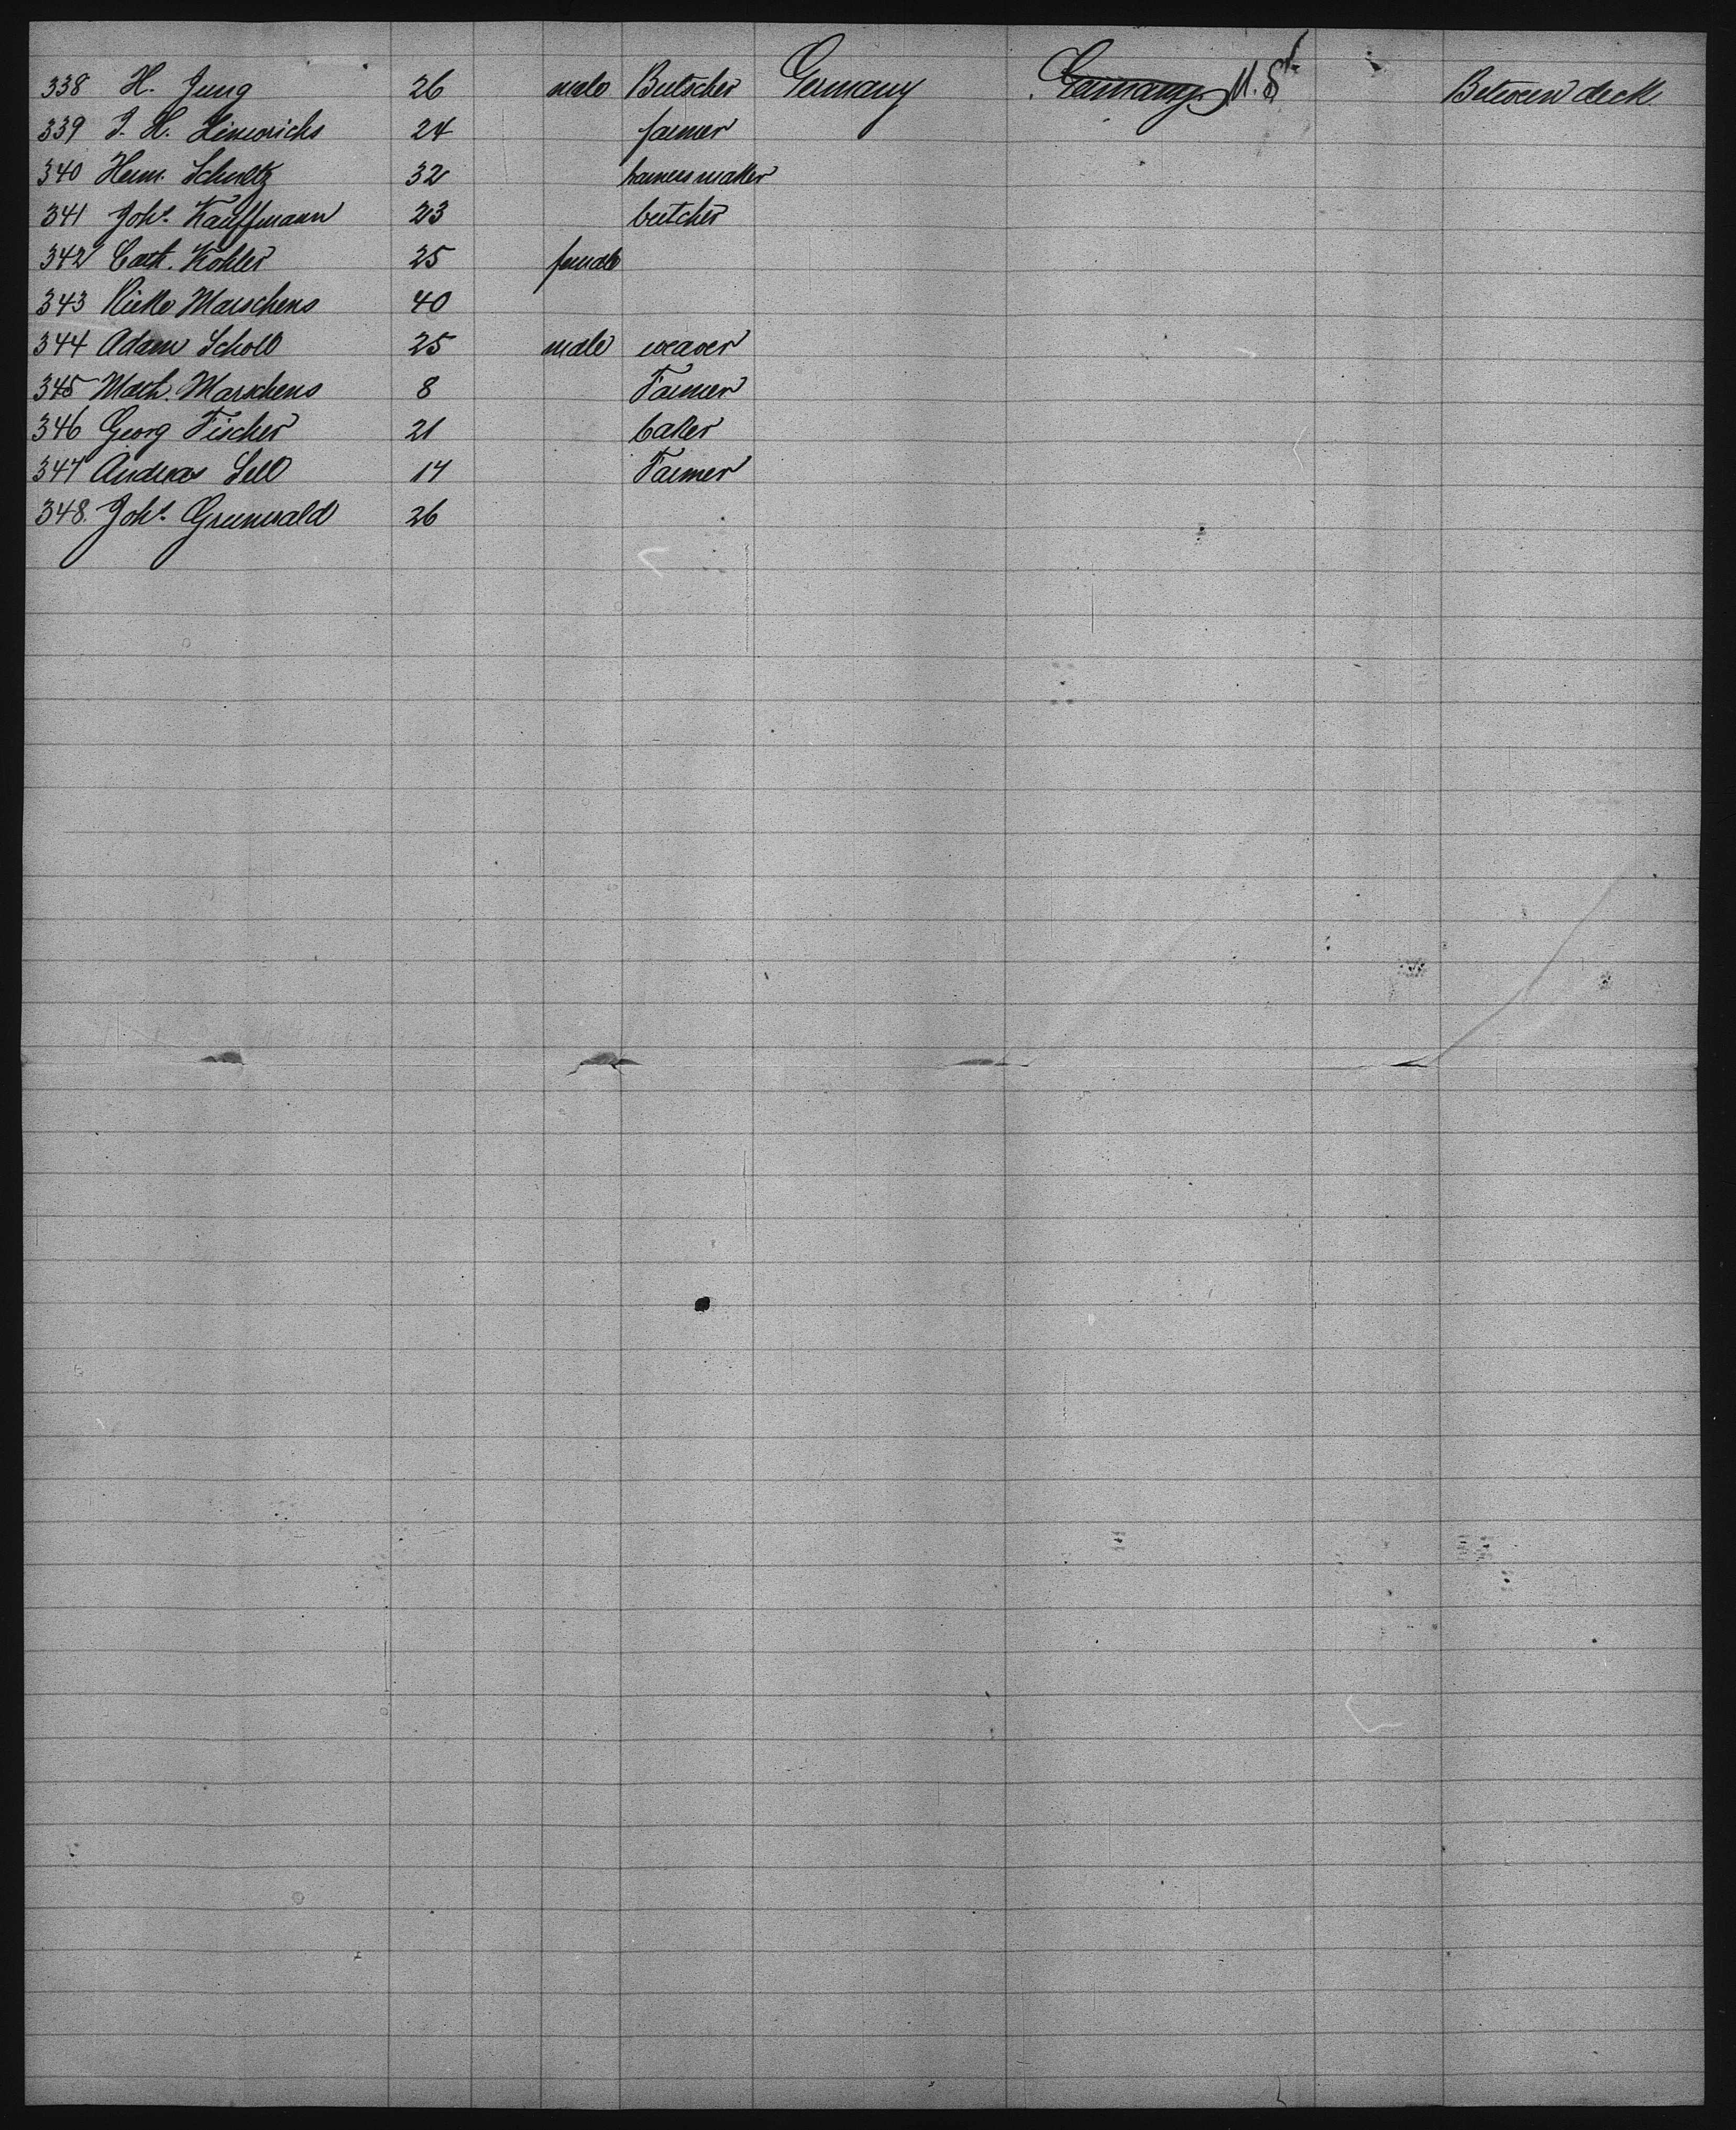 338 H. Jung 26 male Butscher Germany Germany U. St. Between deck.
339 J. H. Hinnrichs 24 farmer
340 Herm. Schultz 32 harness maker
341 Johs. Kauffmann 23 butcher
342 Cath. Kohler 25 female
343 Rieke Marschens 40
344 Adam Scholl 25 male weaver
345 Math. Marschens 8 Farmer
346 Georg Fischer 21 baker
347 Andreas Sell 17 Farmer
348. Johs. Grunwald 26